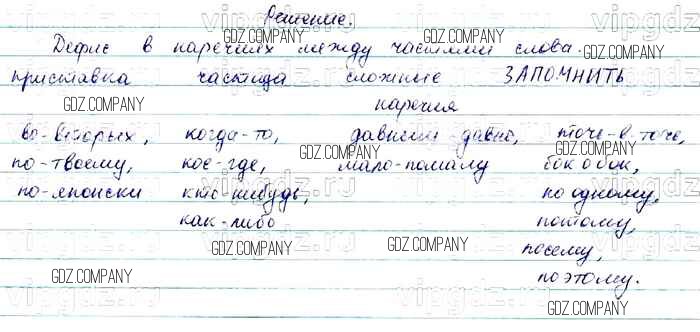 Решение.
Дефис в наречиях между частями слова.
приставка частица сложные ЗАПОМНИТЬ
наречия
во-вторых, когда-то, давным-давно, точь-в-точь,
по-твоему, кое-где, мало-помалу бок о бок,
по-японски кто-нибудь, по одному,
как-либо потому,
посему,
поэтому.
GDZ.COMPANY
vipgdz.ru